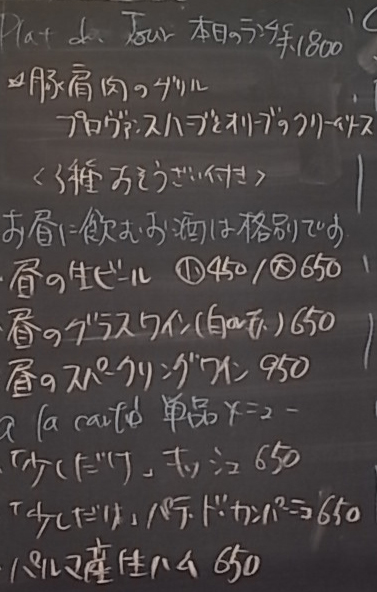 Plat du Jour 本日のランチ ¥1800
豚肩肉のグリル
プロヴァンスハーブとオリーブのクリームソース
<3種おそうざい付き>
お昼に飲むお酒は格別です
・昼の生ビール ㊥450/大650
・昼のグラスワイン(白or赤)650
・昼のスパークリングワイン 950
a la carte 単品メニュー
・「少しだけ」キッシュ 650
・「少しだけ」パテ・ド・カンパーニュ 650
・パルマ産生ハム 650